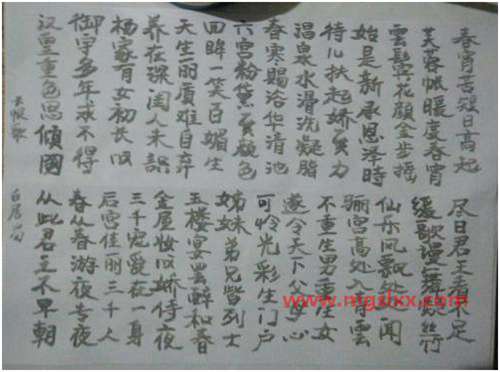 长恨歌
汉皇重色思傾國
御宇多年求不得
杨家有女初长成
养在深闺人未識
天生丽质难自弃
回眸一笑百媚生
六宫粉黛無颜色
春寒赐浴华清池
温泉水滑洗凝脂
侍儿扶起娇無力
始是新承恩泽時
雲鬓花颜金步摇
芙蓉帐暖度春宵
春宵苦短日高起
白居易
从此君王不早朝
春从春游夜专夜
后宫佳丽三千人
三千宠爱在一身
金屋妆成娇侍夜
玉楼宴罢醉和春
姊妹弟兄皆列士
可怜光彩生门户
遂令天下父母心
不重生男重生女
骊宫高处入青雲
仙乐风飘处处闻
缓歌慢舞凝丝竹
尽日君王看不足
www.mgshxx.com